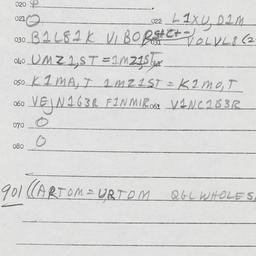 020 φ
021 O 022 L1XU, D1M
030 B1L81K V1BOR 031 VOLVL8 (2
040 UMZ1,ST = 1MZ1ST,
050 K1MA,T 1MZ1ST = K1MO,T
060 VEJN1G3R F1NM1R V1NC1G3R
070 O
080 O
901 ((ARTOM = URTOM Q6L WHOLES